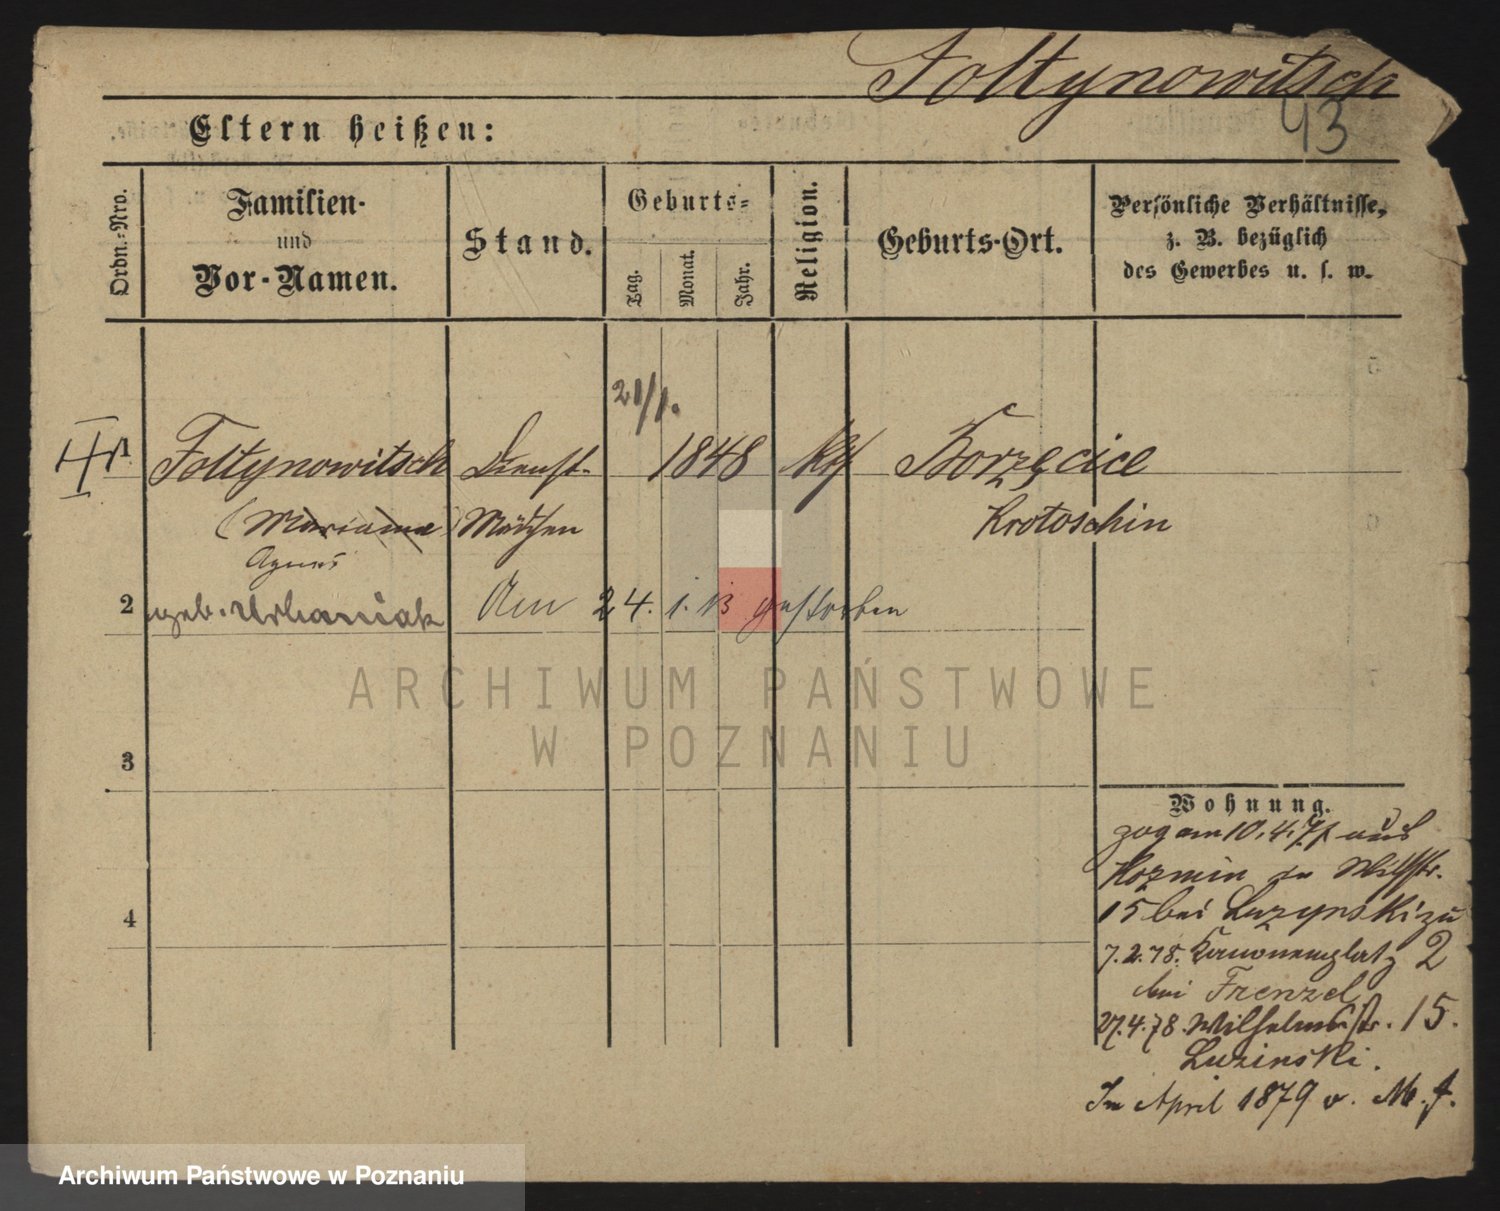 Foltynowitsch
43
Eltern heißen:
Ordn.-Nro.
Familien-
und
Vor-Namen.
Stand.
Geburts-
Tag.
Monat.
Jahr.
Religion.
Geburts-Ort.
Persönliche Verhältnisse,
z. B. bezüglich
des Gewerbes u. s. w.
21/1.
1 Foltynowitsch Dienst- 1848 kth Borzęcice
(Marianna) Mädchen Krotoschin
Agnes
2 geb. Urbaniak Am 24. 1. 13 gestorben
ARCHIWUM PAŃSTWOWE
W POZNANIU
3
4
Wohnung.
zog am 10.4.77 aus
Kozmin in Wilhstr.
15 bei Luzynski zu
7.2.78. Kanonenplatz 2
bei Frenzel
27.4.78. Wilhelmstr. 15.
Luzinski.
In April 1879 v.
Archiwum Państwowe w Poznaniu